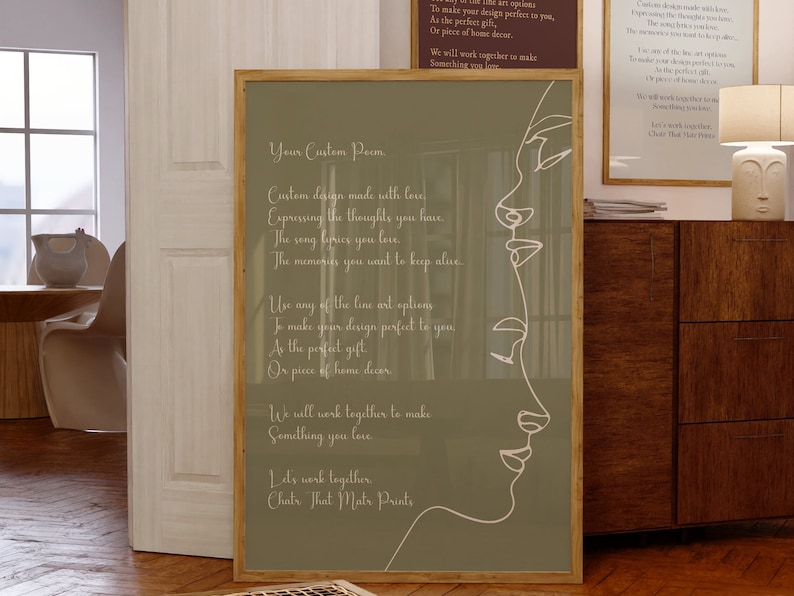 Your Custom Poem.
Custom design made with love.
Expressing the thoughts you have,
The song lyrics you love.
The memories you want to keep alive...
Use any of the line art options
To make your design perfect to you,
As the perfect gift,
Or piece of home decor.
We will work together to make
Something you love.
Let's work together.
Chatr That Matr Prints
Use any of the line art options
To make your design perfect to you,
As the perfect gift,
Or piece of home decor.
We will work together to make
Something you love.
Custom design made with love.
Expressing the thoughts you have,
The song lyrics you love.
The memories you want to keep alive...
Use any of the line art options
To make your design perfect to you,
As the perfect gift,
Or piece of home decor.
We will work together to make
Something you love.
Let's work together.
Chatr That Matr Prints